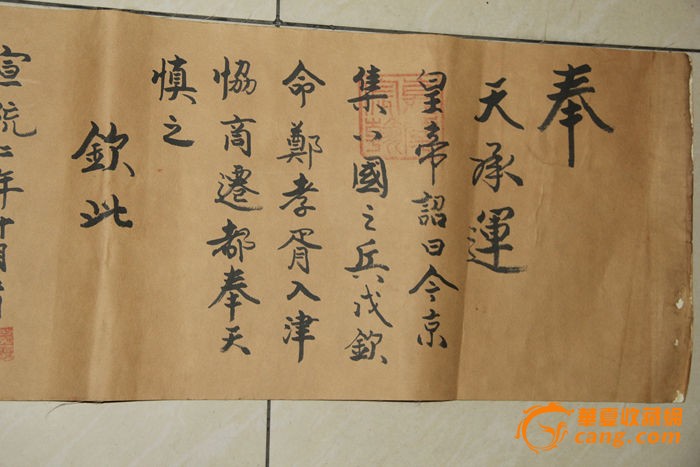 奉
天承運
皇帝詔曰今京
集八國之兵戍欽
命鄭孝胥入津
恊商遷都奉天
慎之
欽此
宣統二年十月
華臺收藏網
cang.com